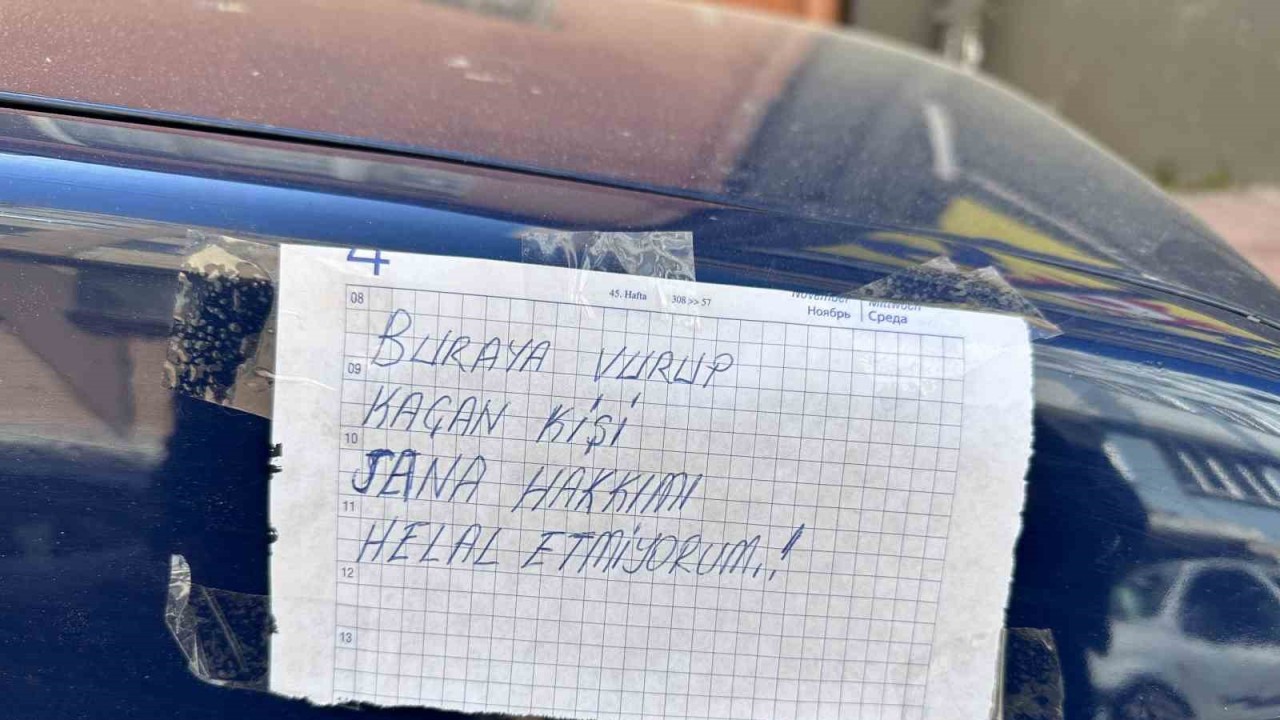 4
45. Hafta 308 >> 57
November Mittwoch
Ноябрь Среда
08
BURAYA VURUP
09
KAÇAN KİŞİ
10
SANA HAKKIMI
11
HELAL ETMİYORUM..!
12
13